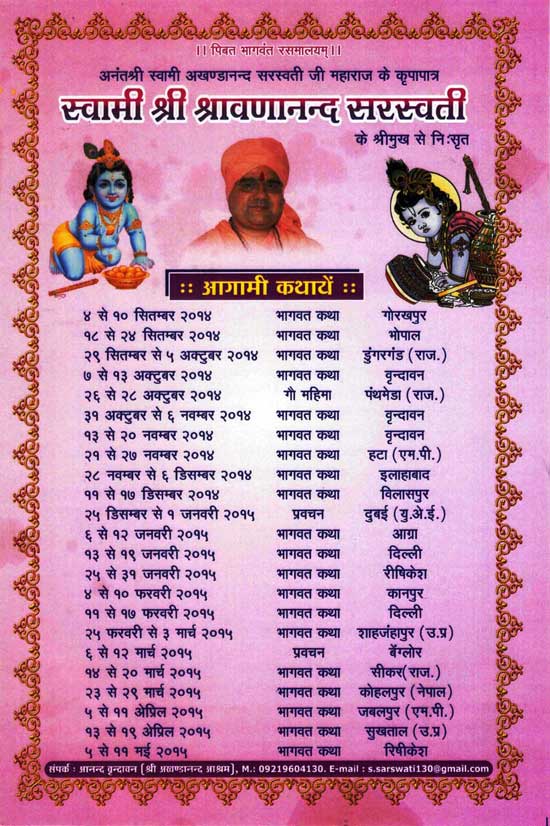 ।। पिबत भागवंत रसमालयम् ।।
अनंतश्री स्वामी अखण्डानन्द सरस्वती जी महाराज के कृपापात्र
स्वामी श्री श्रावणानन्द सरस्वती
के श्रीमुख से निःसृत
:: आगामी कथायें ::
४ से १० सितम्बर २०१४ भागवत कथा गोरखपुर
१८ से २४ सितम्बर २०१४ भागवत कथा भोपाल
२९ सितम्बर से ५ अक्टुबर २०१४ भागवत कथा डुंगरगंड (राज.)
७ से १३ अक्टुबर २०१४ भागवत कथा वृन्दावन
२६ से २८ अक्टुबर २०१४ गौ महिमा पंथमेडा (राज.)
३१ अक्टुबर से ६ नवम्बर २०१४ भागवत कथा वृन्दावन
१३ से २० नवम्बर २०१४ भागवत कथा वृन्दावन
२१ से २७ नवम्बर २०१४ भागवत कथा हटा (एम.पी.)
२८ नवम्बर से ६ डिसम्बर २०१४ भागवत कथा इलाहाबाद
११ से १७ डिसम्बर २०१४ भागवत कथा विलासपुर
२५ डिसम्बर से १ जनवरी २०१५ प्रवचन दुबई (यु.अे.ई.)
६ से १२ जनवरी २०१५ भागवत कथा आग्रा
१३ से १९ जनवरी २०१५ भागवत कथा दिल्ली
२५ से ३१ जनवरी २०१५ भागवत कथा रीषिकेश
४ से १० फरवरी २०१५ भागवत कथा कानपुर
११ से १७ फरवरी २०१५ भागवत कथा दिल्ली
२५ फरवरी से ३ मार्च २०१५ भागवत कथा शाहजंहापुर (उ.प्र)
६ से १२ मार्च २०१५ प्रवचन बेंग्लोर
१४ से २० मार्च २०१५ भागवत कथा सीकर(राज.)
२३ से २९ मार्च २०१५ भागवत कथा कोहलपुर (नेपाल)
५ से ११ अेप्रिल २०१५ भागवत कथा जबलपुर (एम.पी.)
१३ से १९ अेप्रिल २०१५ भागवत कथा सुखताल (उ.प्र)
५ से ११ मई २०१५ भागवत कथा रिषीकेश
संपर्क : आनन्द वृन्दावन [श्री अखण्डानन्द आश्रम], M.: 09219604130. E-mail : s.sarswati130@gmail.com